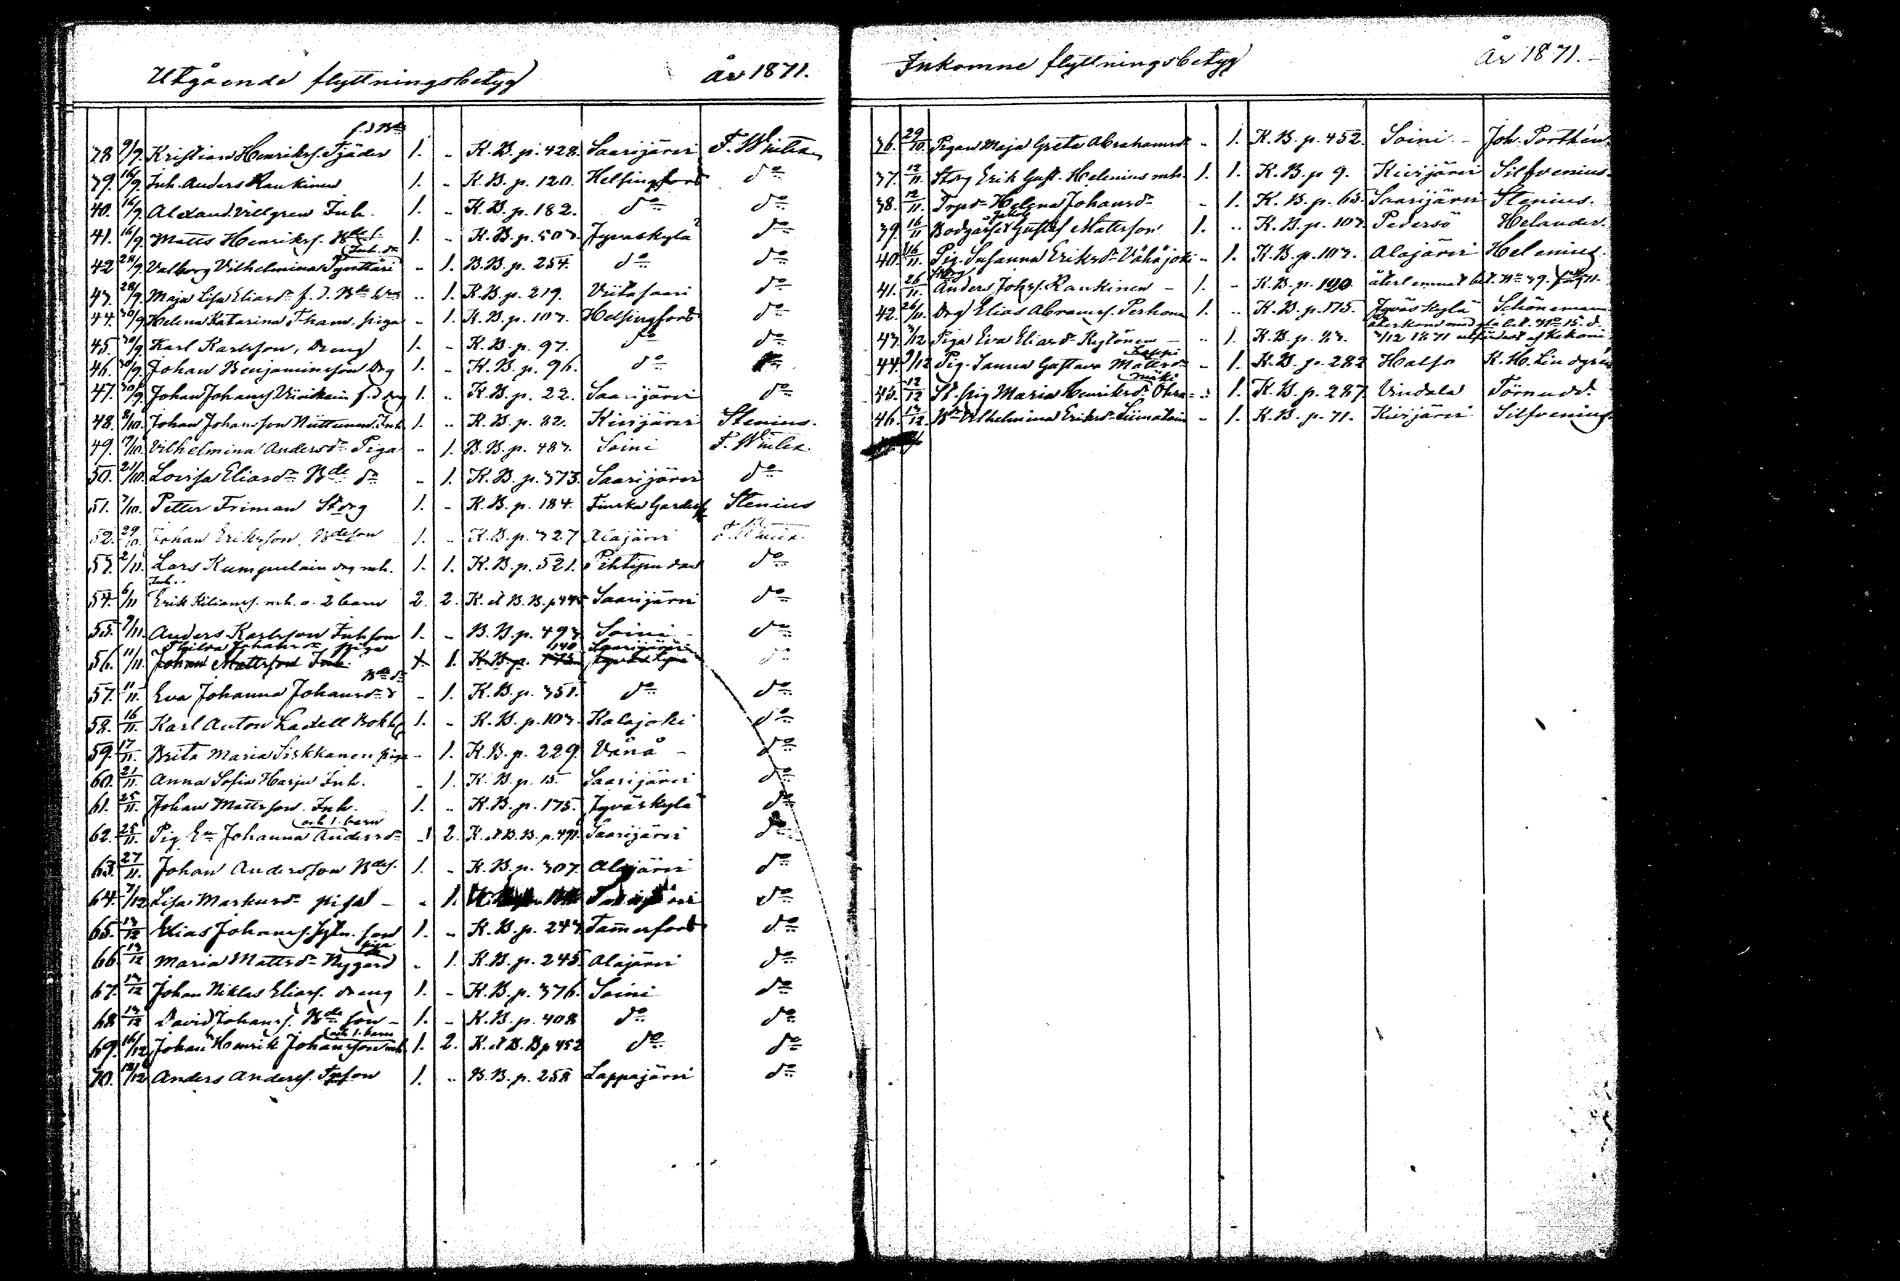 Utgående flyttningsbetyg år 1871.
f.d. Bde
38. 9/9. Kristian Henrikss. Fjäder 1. - K.B. p. 428. Saarijärvi F. Wiulia
39. 16/9. Inh. Anders Raukinen 1. - K.B. p. 120. Helsingfors do
40. 16/9. Alexand Villgren Inh. 1. - K.B. p. 182. do do
41. 16/9. Matts Henrikss. 1. - K.B. p. 503. Jyväskylä do
Inh. dr
42 28/9. Valborg Vilhelmina - 1. B.B. p. 254. do do
43. 28/9. Maja Lisa Eliasdr f.d. Bde .. 1. K.B. p. 219. Viitasaari do
44. 30/9 Helena Katarina Tham, piga - 1. K.B. p. 103. Helsingfors do
45. 30/9 Karl Karlsson, dreng 1. - K.B. p. 97. do do
46. 30/9 Johan Benjaminsson drg 1. - K.B. p. 96. do
47. 30/9 Johan Johanss f.d. drg 1. - K.B. p. 22. Saarijärvi do
48. 8/10. Johan Johansson Inh 1. .. K.B. p. 82. Kivijärvi Stenius.
49. 9/10. Vilhelmina Andersdr Piga - 1. B.B. p. 483. Soini F. Wiulia.
50. 21/10. Lovisa Eliasdr Bde dr - 1. K.B. p. 373. Saarijärvi do
51. 7/10. Petter Friman Stdrg 1. - K.B. p. 184. Finska Gardesb Stenius
52. 29/10. Johan Eriksson, Bdeson 1. - K.B. p. 327 Alajärvi F. Wiulia.
53. 2/11. Lars Kumpulain drg mh. 1. 1. K.B. p. 521. Pihtipudas do
Inh.
54. 6/11 Erik Kilianss. mh. o. 2 barn 2. 2. K. et B.B. p 445 Saarijärvi do
55. 9/11. Anders Karlsson Inhson 1. - B.B. p. 493. Soini - do
Johansdr piga 140 Saarijärvi
56. 11/11. Johan Mattsson Inh 1. 1. K.B. p. 175. Jyväskylä do
Bde dr
57. 11/11. Eva Johanna Johansdr - 1. K.B. p. 351. do do
58. 16/11. Karl Anton Ladell Bokh 1. - K.B. p. 103. Kalajoki do
59. 17/11. Brita Maria Siskkanen piga - 1. K.B. p. 229. Vånå - do
60. 21/11. Anna Sofia Harju Inh. - 1. K.B. p. 15 Saarijärvi do
61. 25/11. Johan Mattsson. Inh. 1. .. K.B. p. 175. Jyväskylä do
och 1. barn
62. 25/11. Pig En Johanna Andersdr - 1 2. K. et B.B. p. 491. Saarijärvi do
63. 27/11. Johan Andersson Bdes. 1. - K.B. p. 307. Alajärvi do
64. 7/12 Lisa Markusdr piga - - 1. do
65. 13/12 Elias Johanss. son 1. - K.B. p. 243. Tammerfors do
piga
66. 13/12 Maria Mattsdr Nygård - 1. K.B. p. 245. Alajärvi do
67. 13/12 Johan Niklas Eliass. dreng 1. - K.B. p. 376. Soini do
68. 13/12 David Johanss. Bde son - 1. - K.B. p. 408 do do
och 1. barn
69. 16/12 Johan Henrik Johansson mh. 1. 2. K. et B.B p 452 do do
70. 18/12 Anders Anderss. Inson 1. .. B.B. p. 258 Lappajärvi do
Inkomne flyttningsbetyg år 1871. -
36. 29/10. Pigan Maja Greta Abrahamsdr - 1. K.B. p. 452. Soini - Joh. Porthén
37. 12/11. Stdrg Erik Gust. Helenius mh. 1. 1. K.B. p 9. Kivijärvi Silfvenius.
38. 12/11. Helena Johansdr - 1. K.B. p. 65. Saarijärvi Stenius.
Jakob
39. 16/11. Bodgosse Gustaf Mattsson 1. .. K.B. p. 103. Pedersö Helander.
40. 16/11. Pig. Susanna Eriksdr Vähäjoki - 1. K.B. p. 103. Alajärvi Helenius.
Stdrg
41. 26/11. Anders Johss. Raukinen - 1. - K.B. p. 120 återlemnat bet. No 39.
42. 26/11. Drg Elias Abramss. Perhonn 1. .. K.B. p. 175. Jyväskylä Schöneman
återkom med bet. No 15. d.
43. 3/12 Piga Eva Eliasdr Kytönen - .. 1. K.B. p. 23. 3/12 1871
44. 9/12 Pig. Sanna Gustava Mattsdr - 1. K.B. p. 282 Halso K.H. Lindgren
mäki
45. 12/12 St. pig Maria Henriksdr Ohra = 1. K.B. p. 287. Vindala Törnudd.
46. 13/12. Vilhelmina Eriksdr Liimatain - 1. K.B. p. 71. Kivijärvi Silfvenius.